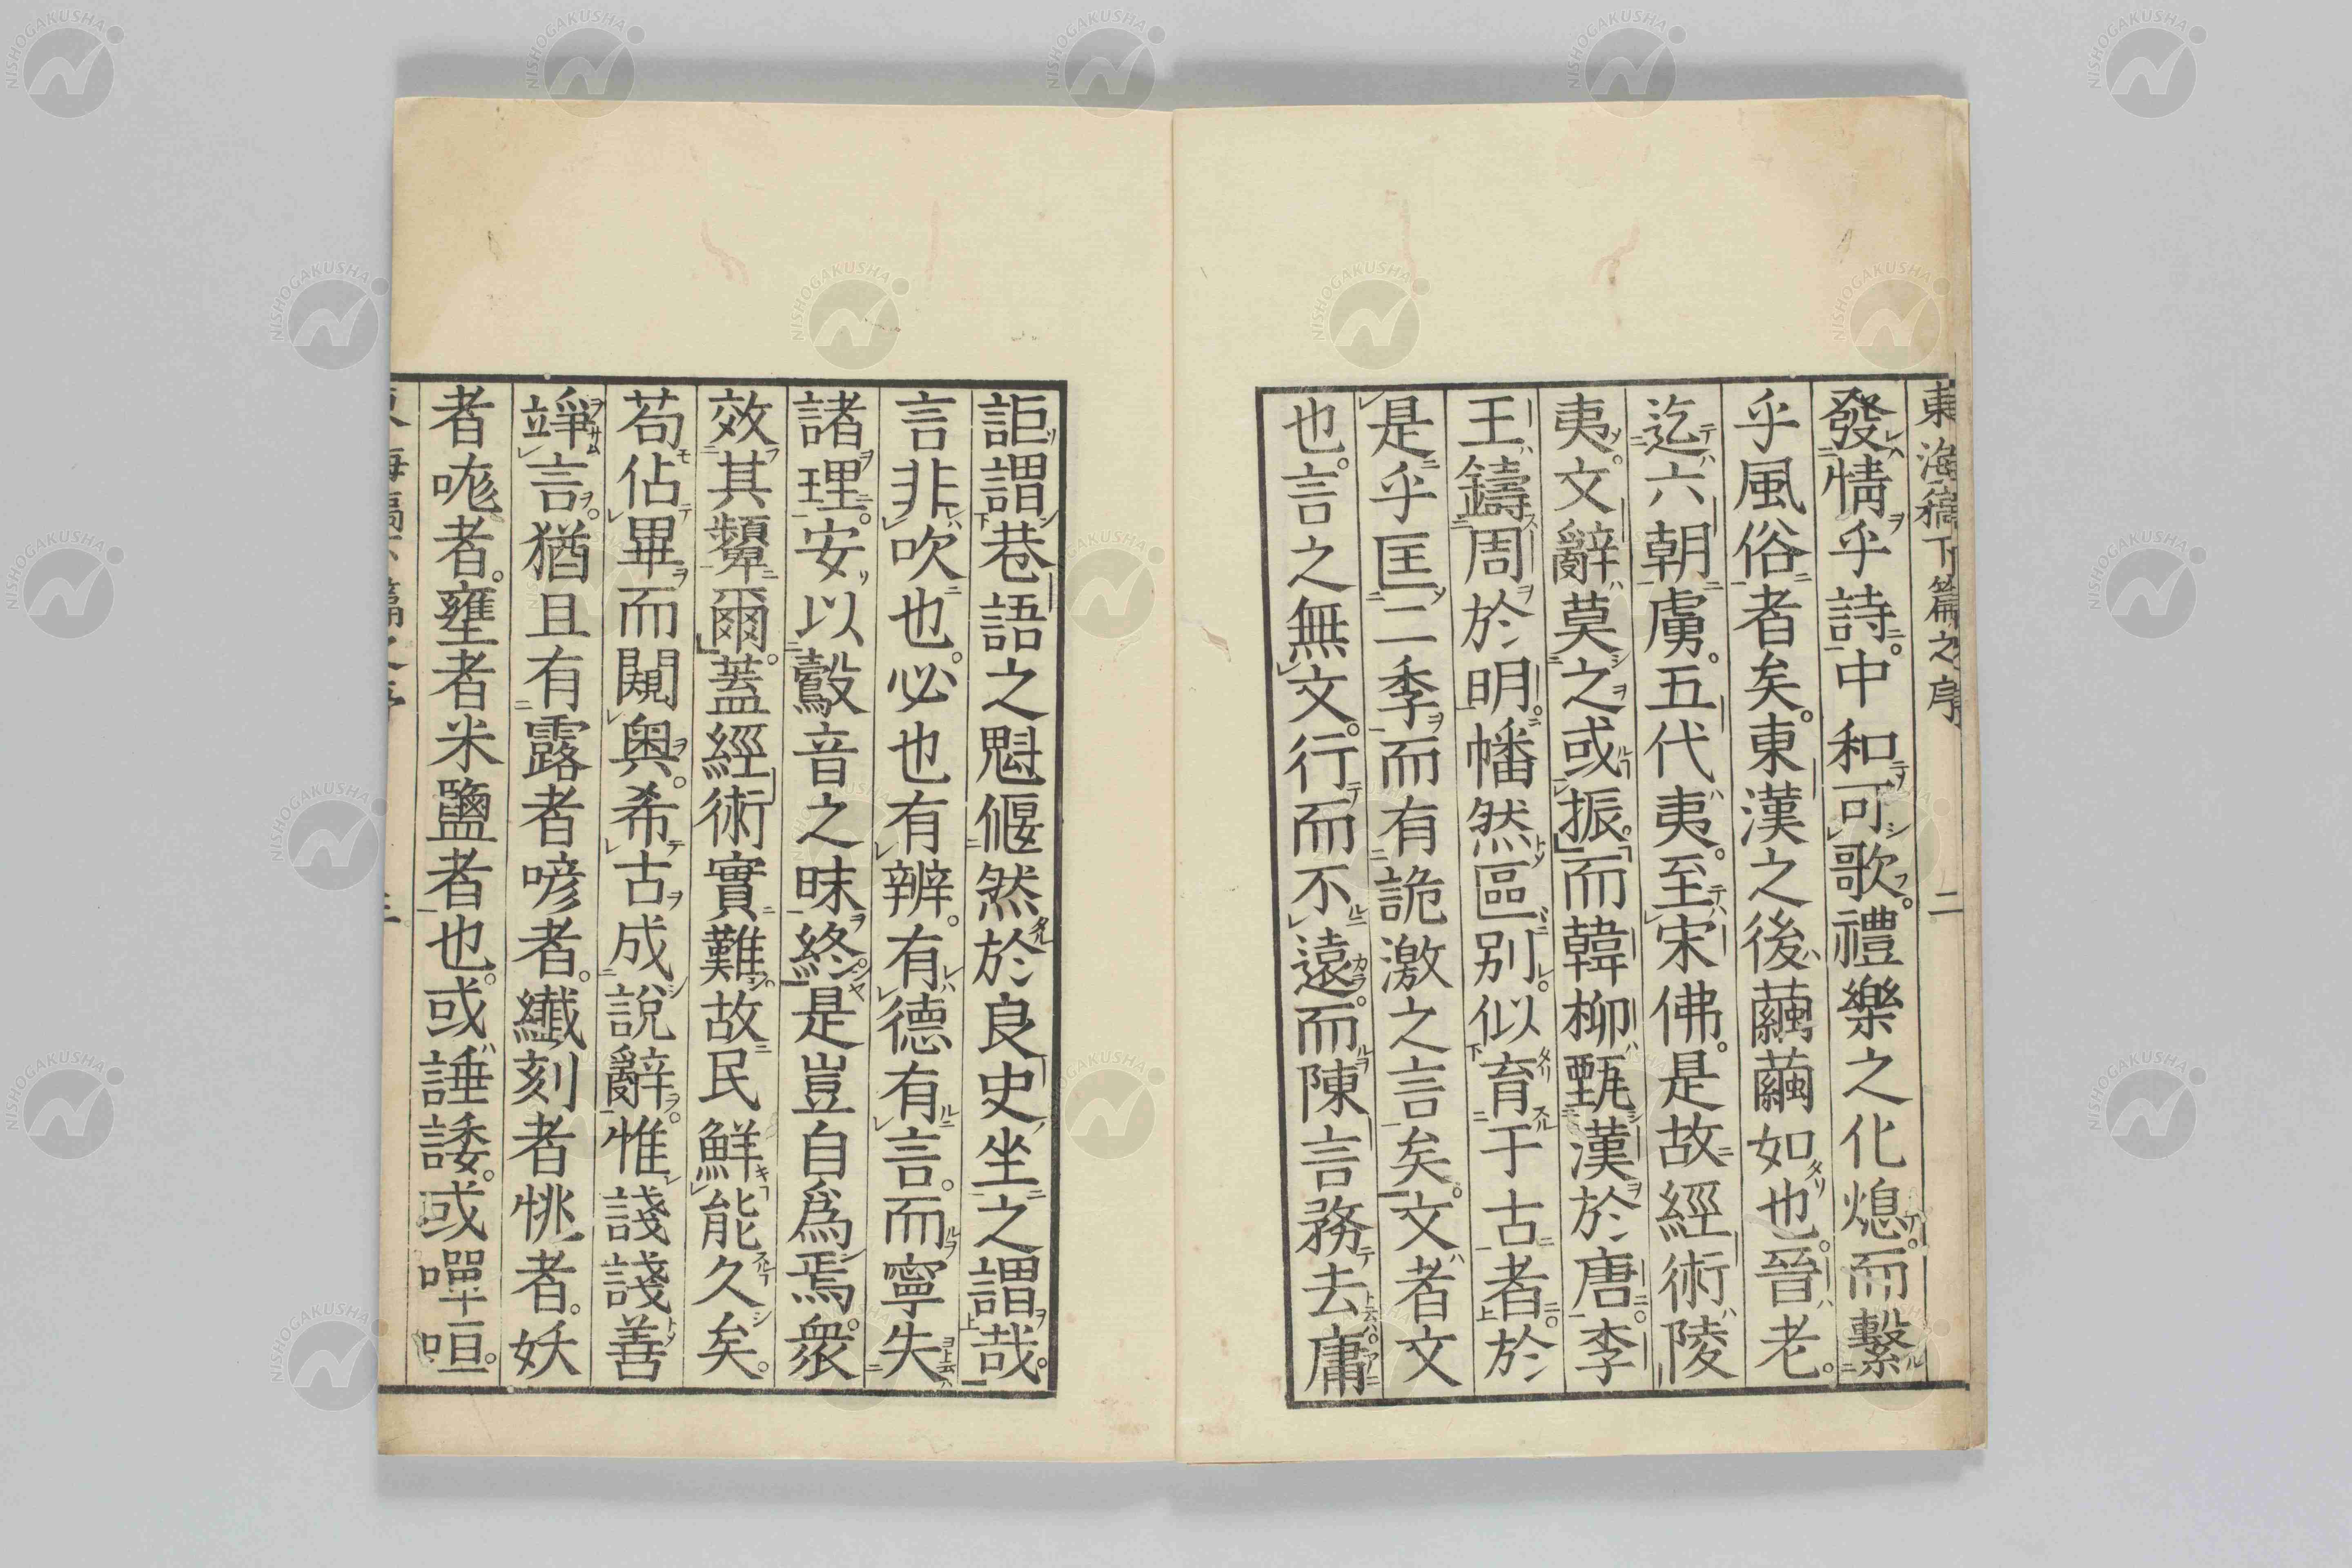 東海稿下篇之序 二
發情乎詩中和可歌禮樂之化熄而繫
乎風俗者矣東漢之後繭繭如也晉老
迄六朝虜五代夷至宋佛是故經術陵
夷文辭莫之或振而韓柳甄漢於唐李
王鑄周於明幡然區別似育于古者於
是乎匡二季而有詭激之言矣文者文
也言之無文行而不遠而陳言務去庸
詎謂巷語之魁偃然於良史坐之謂哉
言非吹也必也有辨有德有言而寧失
諸理安以鷇音之昧終是豈自爲焉衆
效其顰爾蓋經術實難故民鮮能久矣
苟佔畢而闚奥希古成說辭惟諓諓善
竫言猶且有露者喭者纖刻者恌者妖
者咙者壅者米鹽者也或諈諉或嘽咺